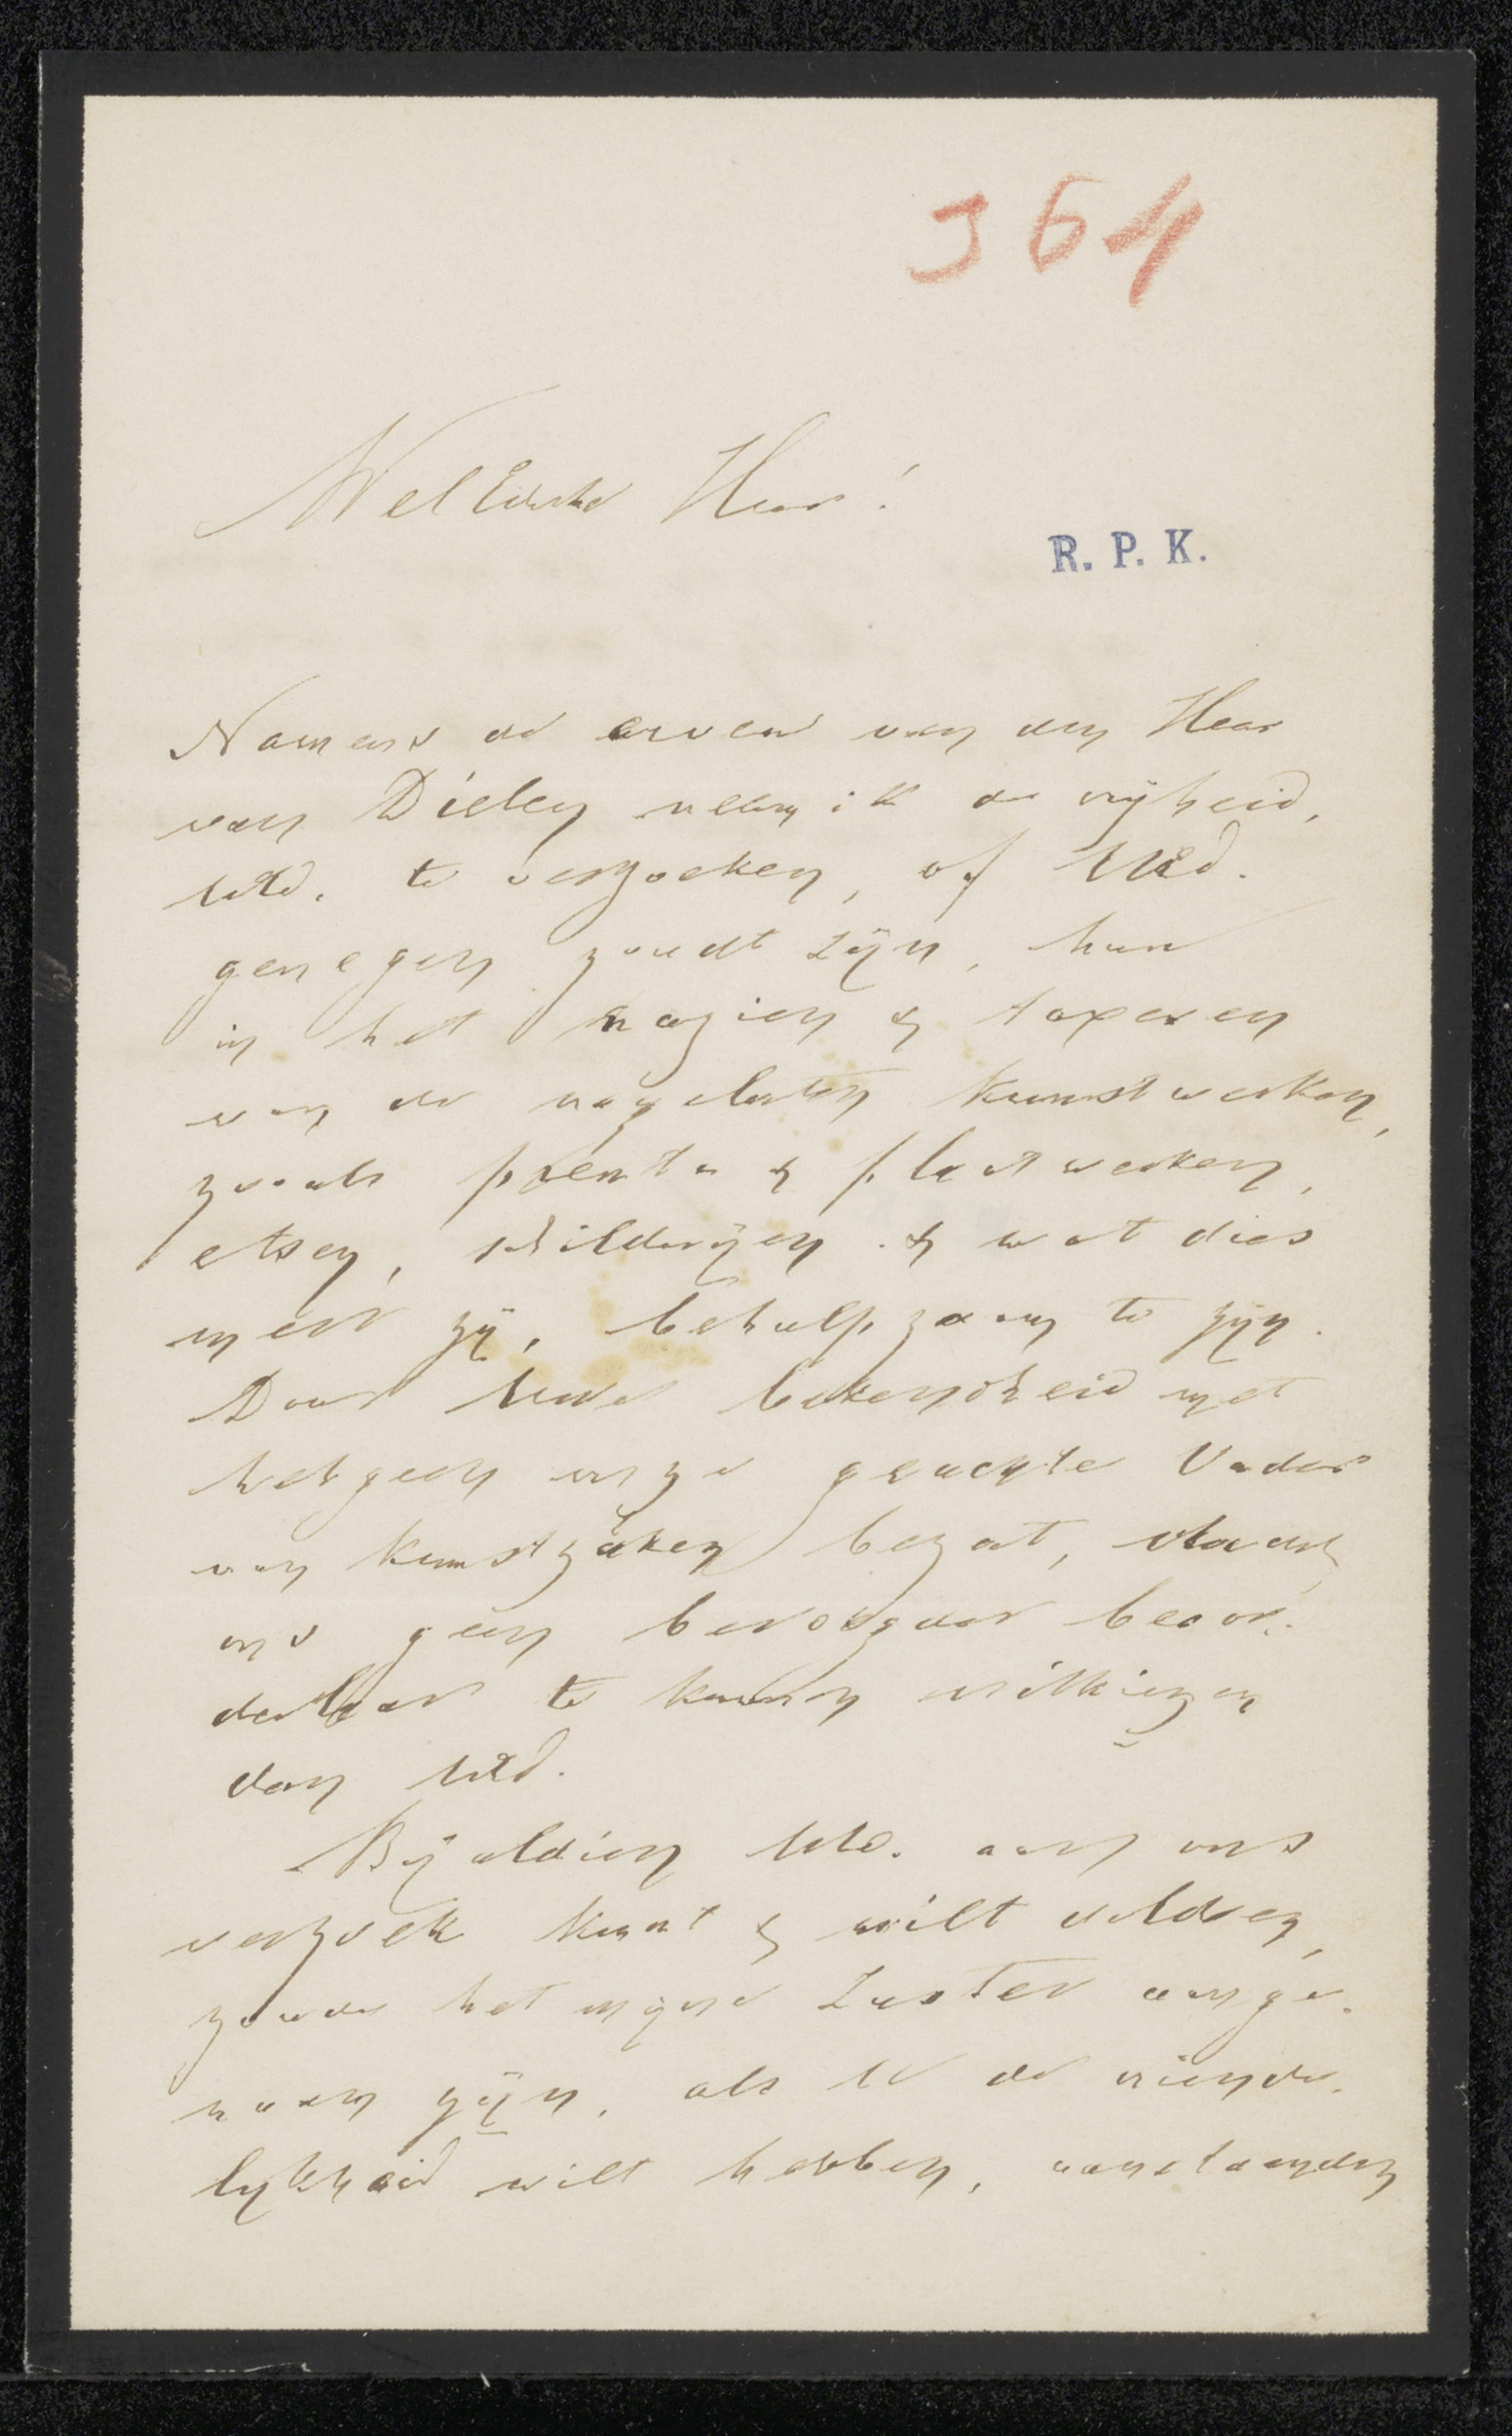 364
WelEdele Heer!
R. P. K.
Namens de erven van den Heer
van Dielen neem ik de vrijheid,
UEd. te verzoeken, of UEd.
genegen zoudt zijn, hun
in het nazien & taxeren
van de nagelaten kunstwerken,
zooals prenten & plaatwerken,
etsen, schilderijen & wat dies
meer zij, behulpzaam te zijn.
Door UEds bekendheid met
hetgeen onze geachte Vader
van kunstzaken bezat,
ons geen bevoegder beoor-
deelaar te kunnen uitkiezen
dan UEd.
Bijaldien UEd. aan ons
verzoek kunt & wilt voldoen,
zoude het mijne Zuster aange-
naam zijn, als U de vriende-
lijkheid wilt hebben, aanstaanden